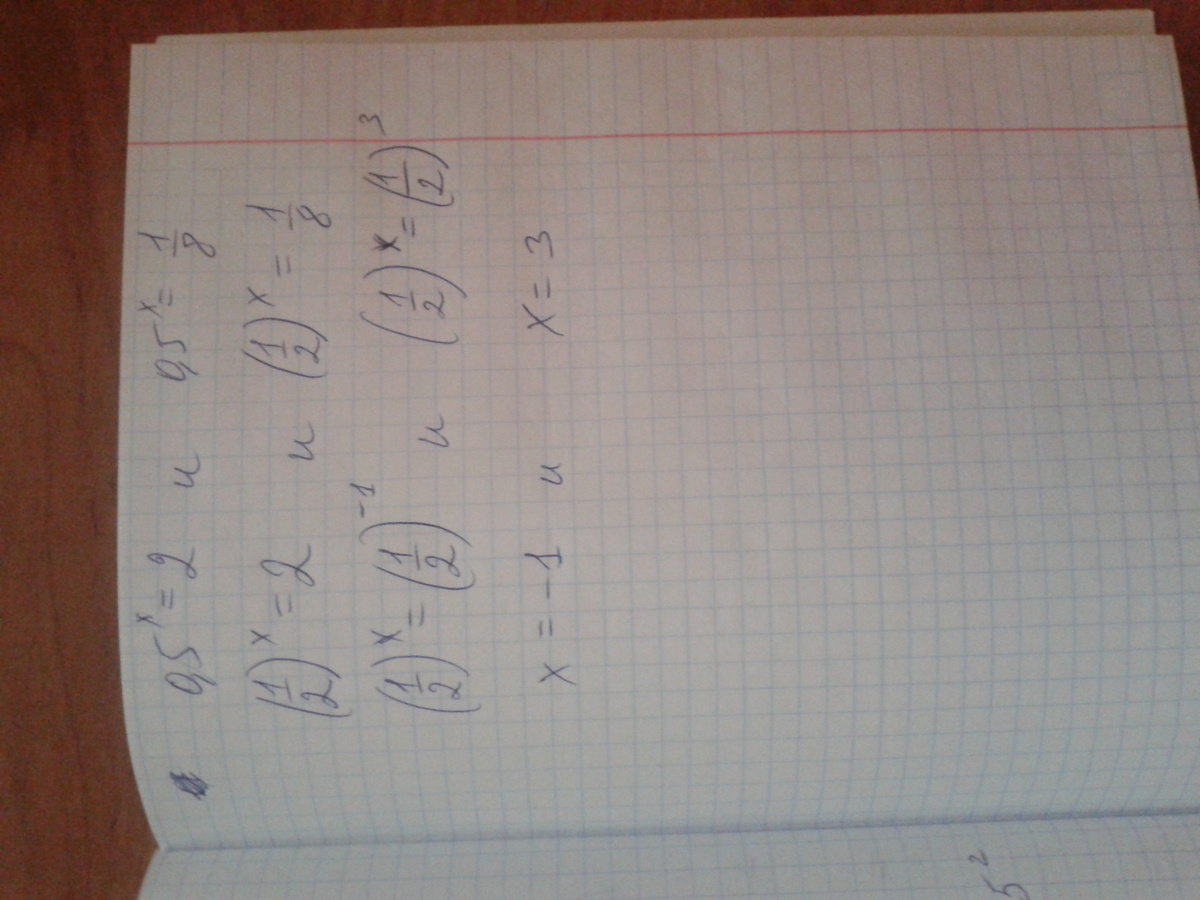 0,5ˣ = 2 и 0,5ˣ = 1/8
(1/2)ˣ = 2 и (1/2)ˣ = 1/8
(1/2)ˣ = (1/2)⁻¹ и (1/2)ˣ = (1/2)³
x = -1 и x = 3
5²